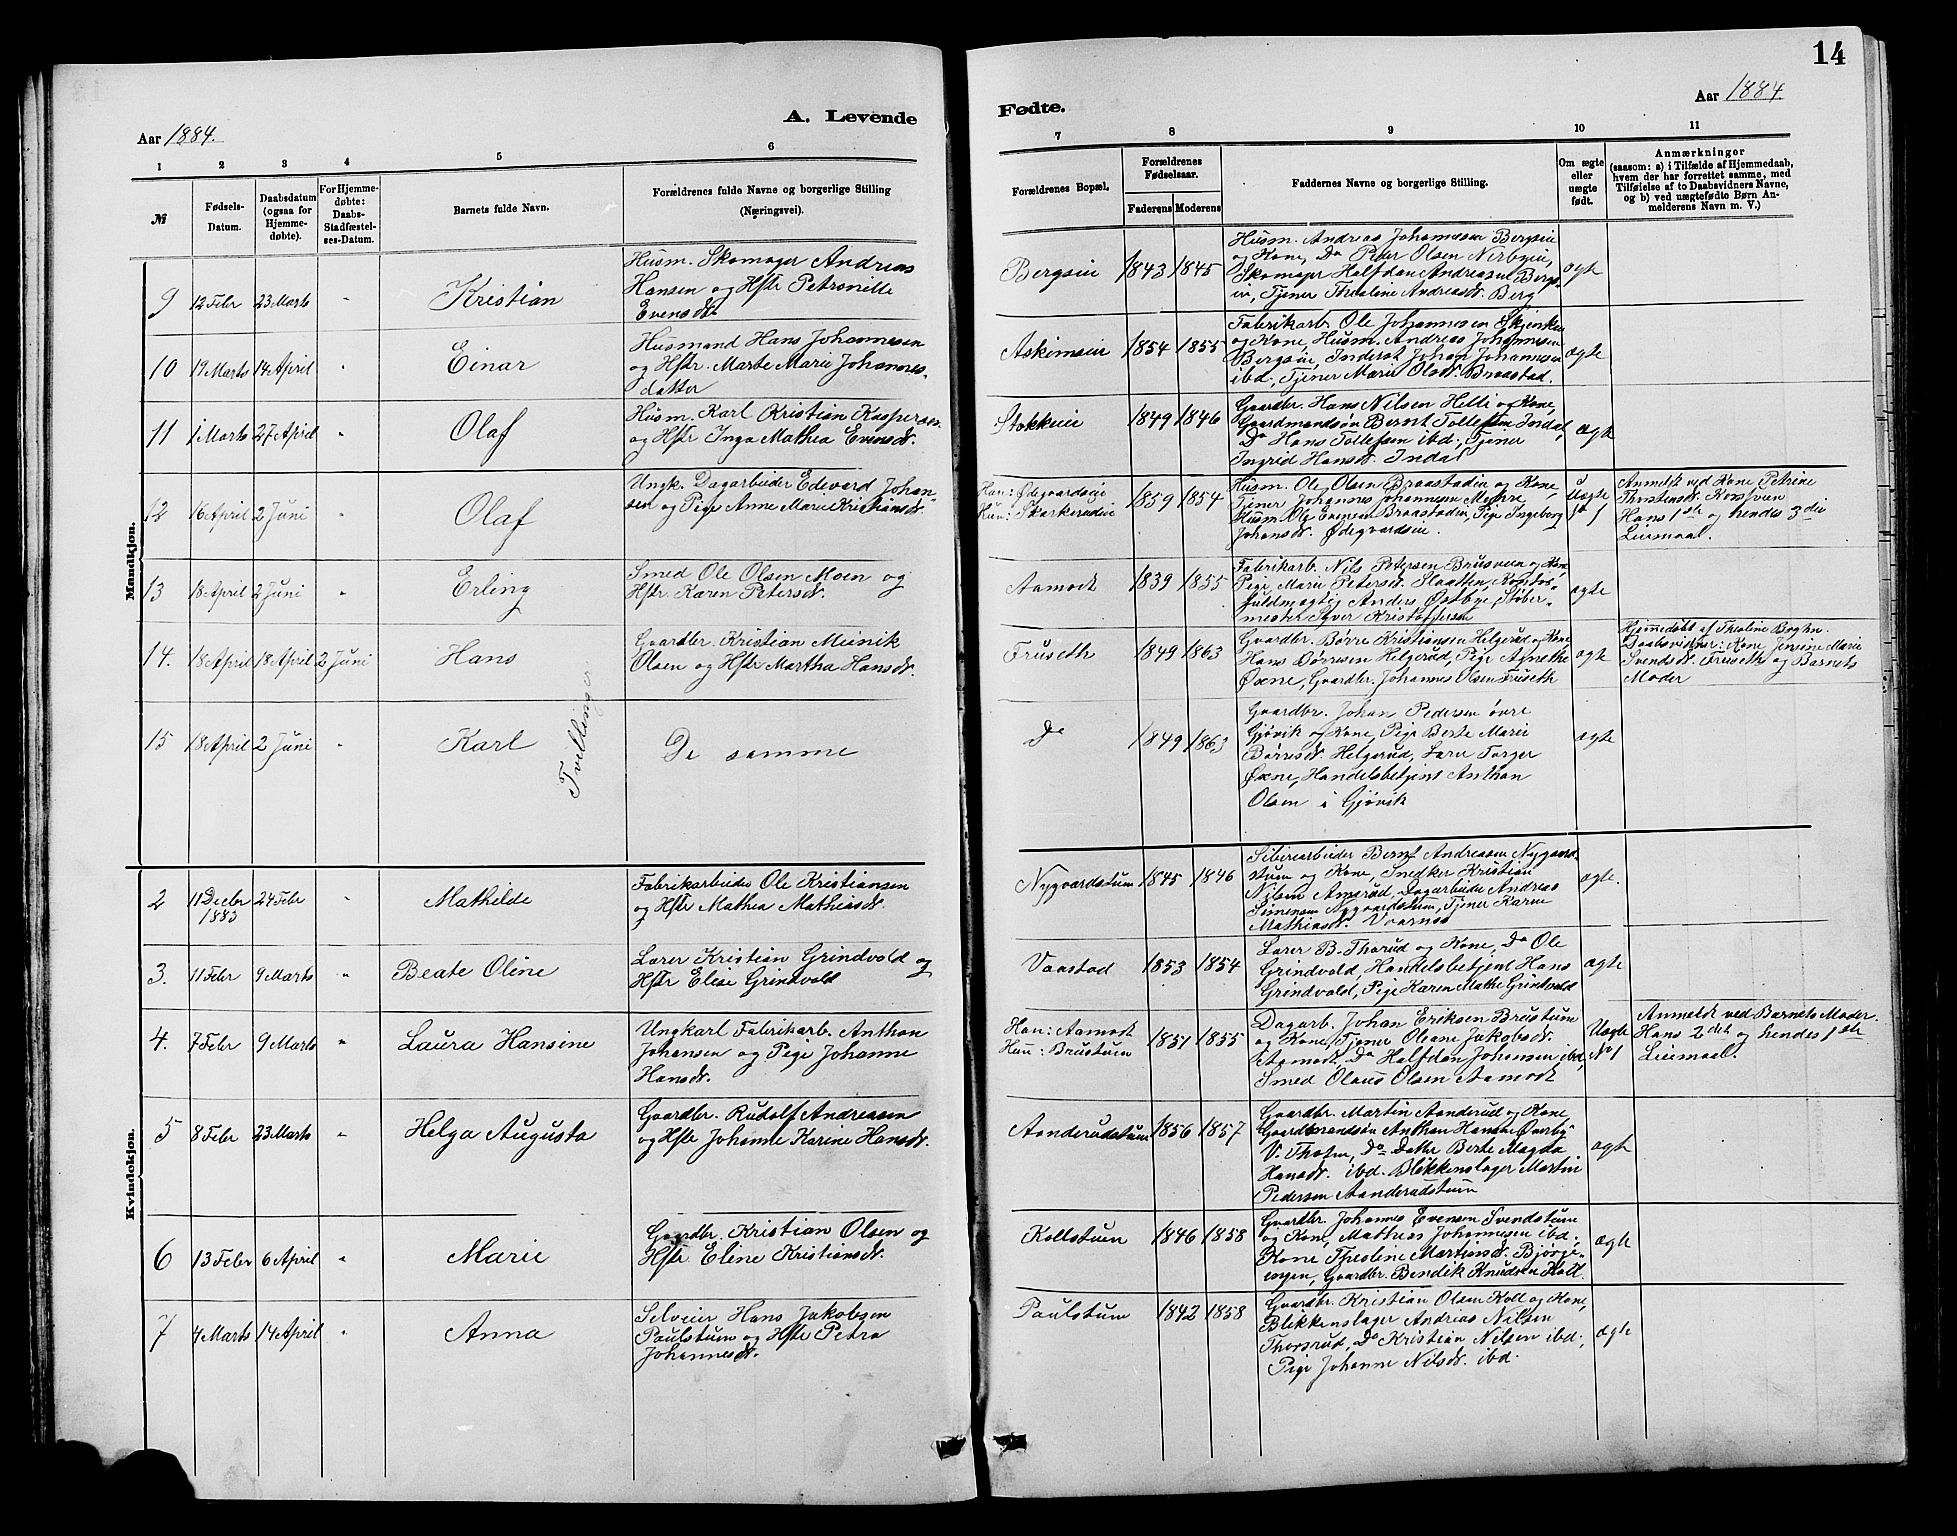 14
A. Levende
Fødte.
Aar 1884.
Aar 1884.
1 2 3 4 5 6 7 8 9 10 11
№
Fødsels-
Datum.
Daabsdatum
(ogsaa for
Hjemme-
døbte).
For Hjemme-
døbte:
Daabs-
Stadfæstel-
ses-Datum.
Barnets fulde Navn.
Forældrenes fulde Navne og borgerlige Stilling
(Næringsvei).
Forældrenes Bopæl.
Forældrenes
Fødselsaar.
Faderens Moderens
Faddernes Navne og borgerlige Stilling.
Om ægte
eller
uægte
født.
Anmærkninger
(saasom: a) i Tilfælde af Hjemmedaab,
hvem der har forrettet samme, med
Tilføielse af to Daabsvidners Navne,
og b) ved uægtefødte Børn An-
melderens Navn m. V.)
Mandkjøn.
9 12 Febr 23 Marts " Kristian
Husm. Skomager Andreas
Hansen og Hstr Petronelle
Evensdr.
Bergseie 1843 1845
Husm. Andreas Johannesen Bergseie
og Kone, Do Peter Olsen Nerbyeie,
Skomager Halfdan Andreasen Bergs-
eie, Tjener Theoline Andreasdr. Berg
ægte
10 19 Marts 14 April " Einar
Husmand Hans Johannesen
og Hstr. Marte Marie Johannes-
datter
Askimseie 1854 1855
Fabrikarb. Ole Johannesen Skjerken
og Kone, Husm. Andreas Johannesen
Bergseie, Inderst Johan Johannesen
ibd., Tjener Marie Olsdr. Braastad.
ægte
11 1 Marts 27 April " Olaf
Husm. Karl Kristian Kaspersen
og Hstr Inga Mathea Evensdr.
Stokkeie 1849 1846
Gaardbr. Hans Nilsen Helli og Kone,
Gaardmandsøn Bernt Tollefsen Indal,
Do Hans Tollefsen ibd., Tjener
Ingrid Hansdr. Indal
ægte
12 16 April 2 Juni " Olaf
Ungk. Dagarbeider Edevard Johan-
sen og Pige Anne Marie Kristiansdr.
Han: Ødegaardseie
Hun: Skarkerudeie
1859 1854
Husm. Ole Olsen Braastadeie og Kone,
Tjener Johannes Johannesen Myhre,
Husm. Ole Evensen Braastadeie, Pige Ingeborg
Johansdr. Ødegaardseie.
Uægte
No 1
Anmeldt ved Kone Petrine
Thorstensdr. Korsveien
Hans 1ste og hendes 3die
Leiermaal.
13 18 April 2 Juni " Erling
Smed Ole Olsen Moen og
Hstr. Karen Petersdr.
Aamodt 1839 1855
Fabrikarb. Nils Petersen Brusveen og Kone
Pige Marie Petersdr. Slaatten, Kontor-
fuldmægtig Anders Østbye, Støber-
mester Syver Kristoffersen
ægte
14. 18 April 18 April 2 Juni Hans
Gaardbr. Kristian Meinik
Olsen og Hstr Martha Hansdr.
Fruseth 1849 1863
Gaardbr. Børre Kristiansen Helgerud og Kone
Hans Børresen Helgerud, Pige Agnethe
Øxne, Gaardbr. Johannes Olsen Fruseth
ægte
Hjemmedøbt af Theoline Berghn.
Daabsvidner: Kone Jensine Marie
Svendsdr. Fruseth og Barnets
Moder
Tvillinger
15 18 April 2 Juni " Karl
De samme
Do 1849 1863
Gaardbr. Johan Pedersen øvre
Gjøvik og Kone, Pige Berte Marie
Børresdr. Helgerud, Lærer Torger
Øxne, Handelsbetjent Anthon
Olsen i Gjøvik
ægte
Kvindekjøn.
2 11 Decbr
1883 24 Febr " Mathilde
Fabrikarbeider Ole Kristiansen
og Hstr Mathea Mathiasdr.
Nygaardstuen 1845 1846
Sliberiarbeider Bernt Andreasen Nygaard-
stuen og Kone, Snedker Kristian
Nilsen Amsrud, Dagarbeider Andreas
Simensen Nygaardstuen, Tjener Karen
Mathiasdr. Vaarnæs
ægte.
3. 11 Febr 9 Marts " Beate Oline
Lærer Kristian Grindvold og
Hstr Elise Grindvold
Vaastad 1853 1854
Lærer B. Thorud og Kone, Do Ole
Grindvold, Handelsbetjent Hans
Grindvold, Pige Karen Mathe Grindvold
ægte
4. 7 Febr 9 Marts " Laura Hansine
Ungkarl Fabrikarb. Anthon
Johansen og Pige Johanne
Hansdr.
Han: Aamodt
Hun: Brustuen
1851 1855
Dagarb. Johan Eriksen Brustuen
og Kone, Tjener Oleane Jakobsdr.
Aamodt, Do Halfdan Johansen ibd,
Smed Olaus Olsen Aamodt
Uægte
No 1
Anmeldt ved Barnets Moder.
Hans 2det og hendes 1ste
Leiermaal.
5 8 Febr 23 Marts " Helga Augusta
Gaardbr. Rudolf Andreasen
og Hstr Johanne Karine Hansdr.
Aanderudstuen 1856 1857
Gaardbr. Martin Aanderud og Kone
Gaardmandsøn Anthon Hansen Overby
V. Thoten, Do Datter Berte Magda
Hansdr. ibd. Blikkenslager Martin
Pedersen Aanderudstuen
ægte
6 13 Febr 6 April " Marie
Gaardbr. Kristian Olsen og
Hstr Eline Kristiansdr.
Kollstuen 1846 1858
Gaardbr. Johannes Evensen Svendstuen
og Kone, Mathias Johannesen ibd.
Kone Theoline Martinsdr. Bjørge-
engen, Gaardbr. Bendik Knudsen Koll.
ægte
7 4 Marts 14 April " Anna
Selveier Hans Jakobsen
Paulstuen og Hstr Petra
Johannesdr.
Paulstuen 1842 1858
Gaardbr. Kristian Olsen Koll og Kone,
Blikkenslager Andreas Nilsen
Thorsrud, Do Kristian Nilsen ibd.,
Pige Johanne Nilsdr. ibd.
ægte